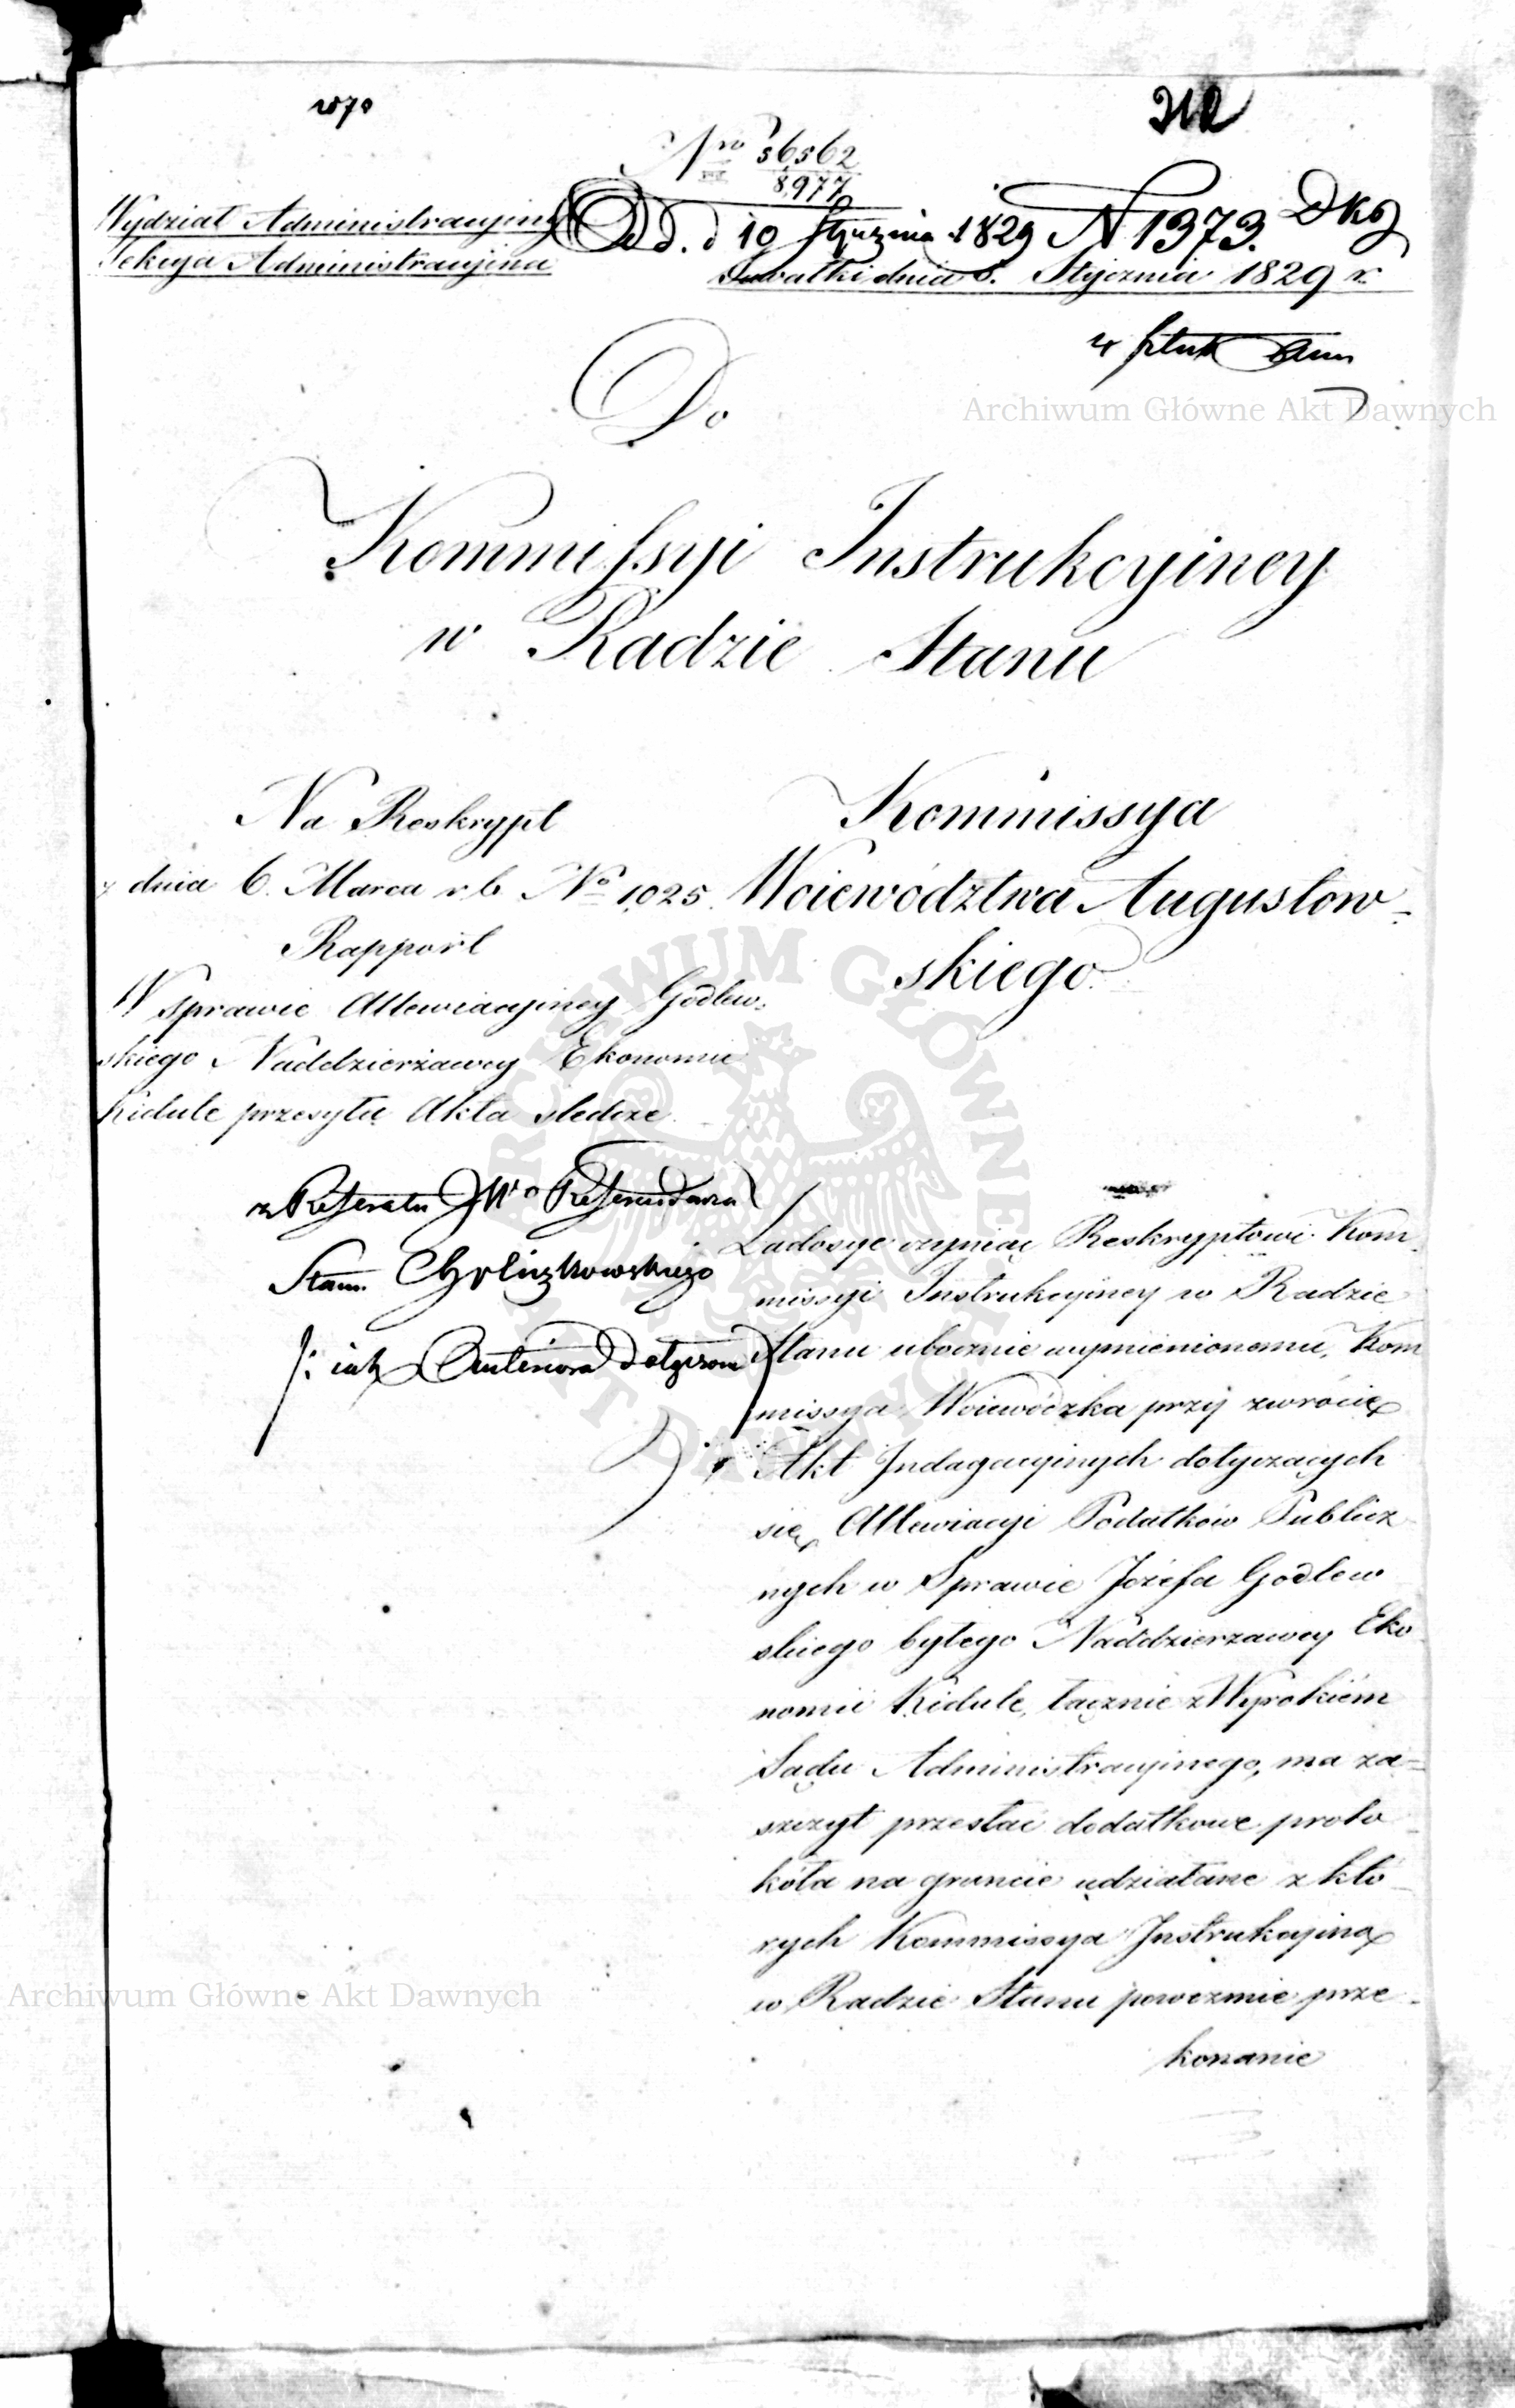 Nro 56,562
8,977
Wydział Administracyiny
Sekcya Administracyina
d. 10 Stycznia 1829 N 1373.
Suwałki dnia 5. Stycznia 1829 r.
Archiwum Główne Akt Dawnych
Do
Kommissyi Instrukcyiney
w Radzie Stanu
Na Reskrypt
z dnia 6. Marca r. b. No 1,025.
Rapport
W sprawie Allewiacyiney Godlew-
skiego Naddzierżawcy Ekonomii
Kidule przesyła Akta śledcze
Kommissya
Woiewództwa Augustow-
skiego
z Referatu JW. Referendarza
Stanu
Zadosyć czyniąc Reskryptowi Kom-
missyi Instrukcyiney w Radzie
Stanu ubocznie wymienionemu, Kom
missya Woiewódzka przy zwrocie
Akt Indagacyinych dotyczących
się Allewiacyi Podatków Publicz
nych w Sprawie Józefa Godlew
skiego byłego Naddzierzawcy Eko
nomii Kidule, łącznie z Wyrokiem
Sądu Administracyinego, ma za-
szczyt przesłać dodatkowe proto
kóła na gruncie udziałane z któ
rych Kommissya Instrukcyina
w Radzie Stanu poweźmie prze-
konanie
Archiwum Główne Akt Dawnych
ARCHIWUM GŁÓWNE AKT DAWNYCH